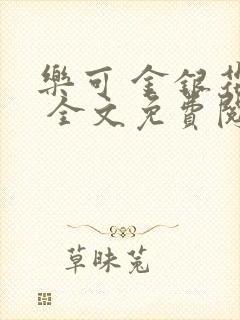 樂可 金銀花
全文免費閱
草昧蒐